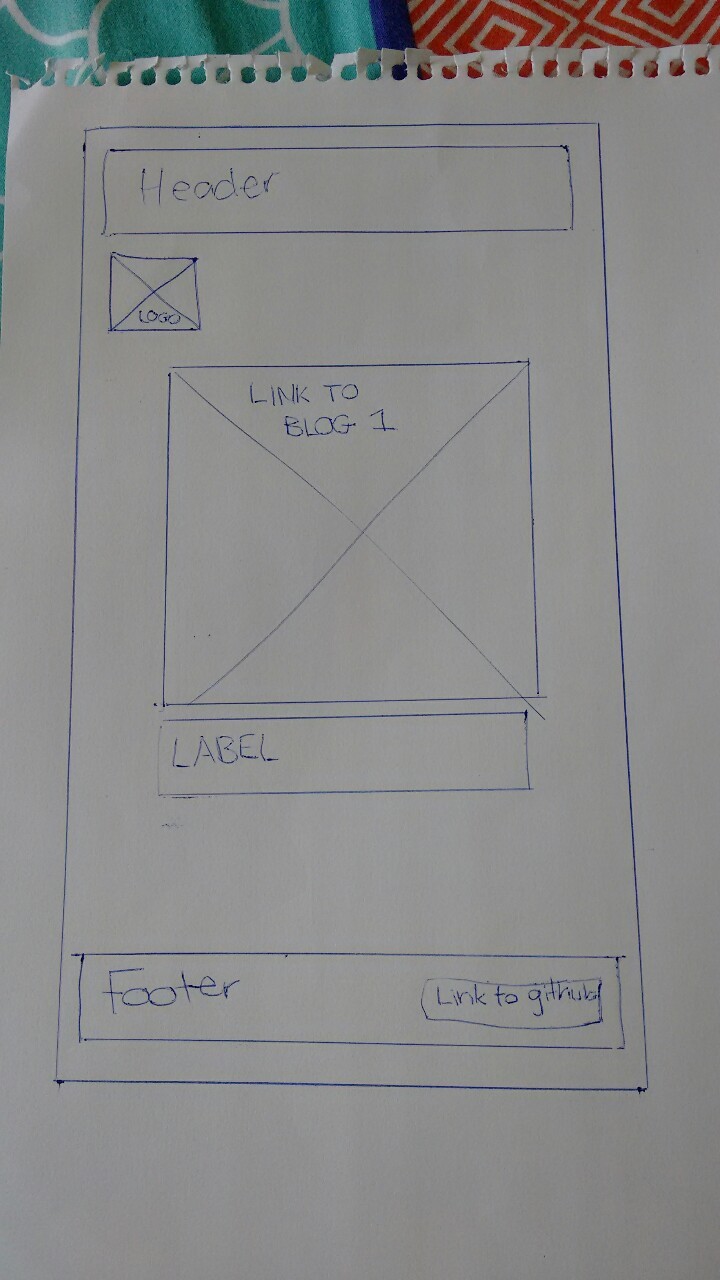 Header
LOGO
LINK TO
BLOG 1
LABEL
Footer
Link to github